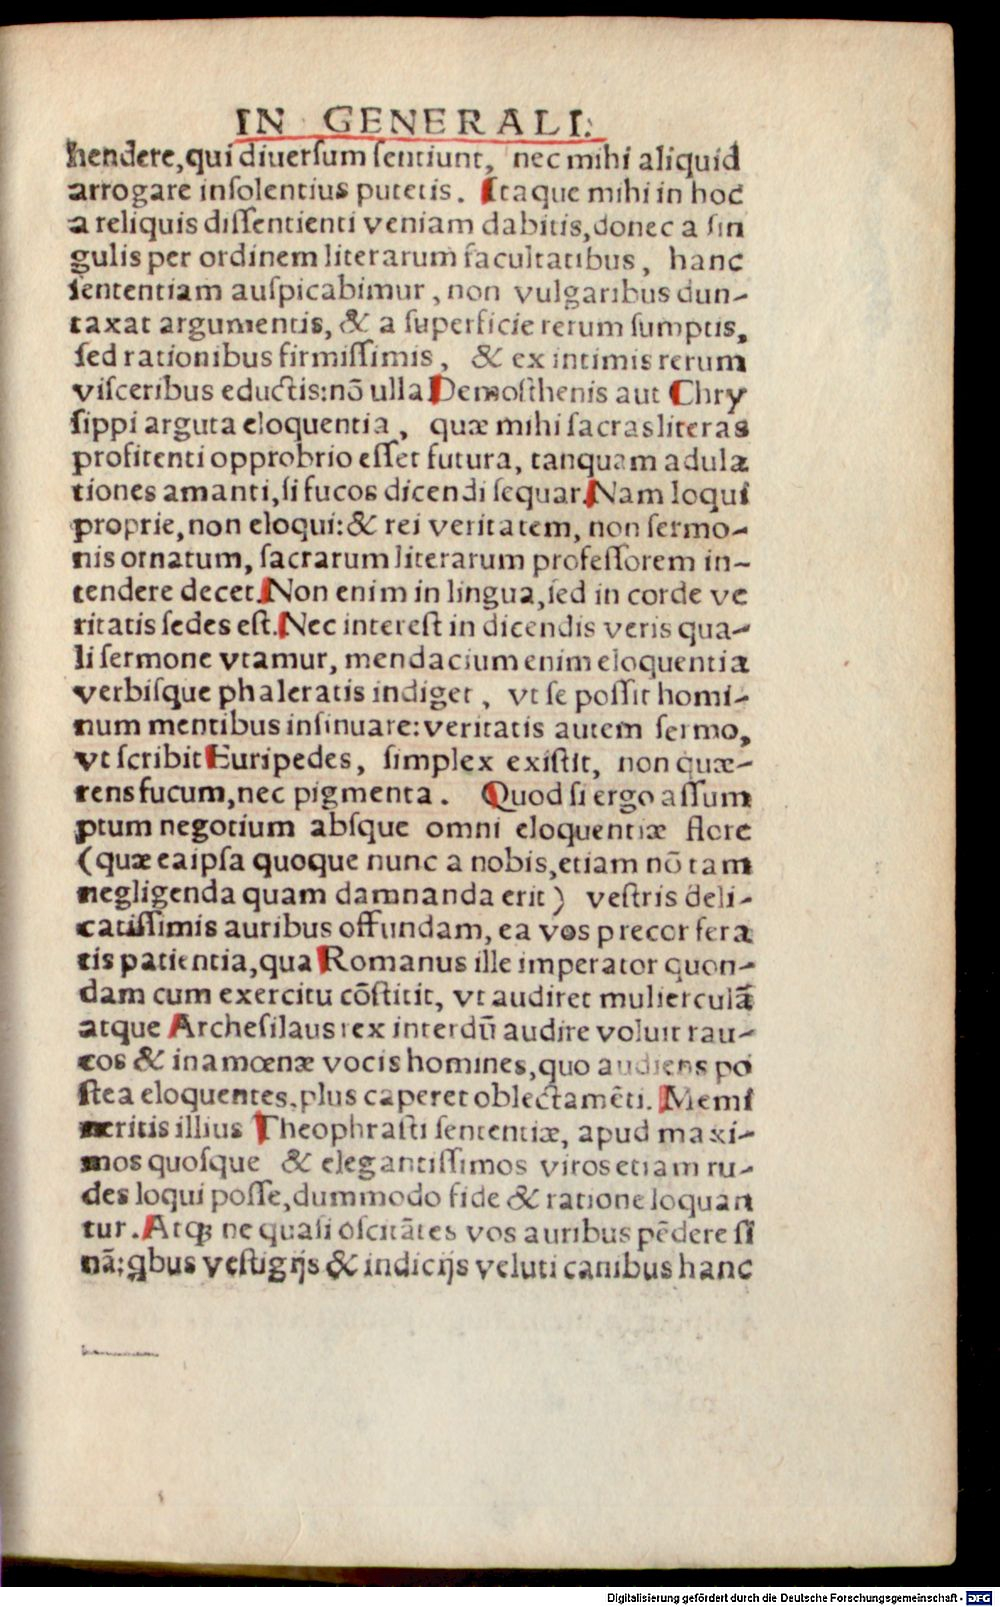 IN GENERALI.
hendere, qui diuersum sentiunt, nec mihi aliquid
arrogare insolentius putetis. Itaque mihi in hoc
a reliquis dissentienti veniam dabitis, donec a sin
gulis per ordinem literarum facultatibus, hanc
sententiam auspicabimur, non vulgaribus dun-
taxat argumentis, & a superficie rerum sumptis,
sed rationibus firmissimis, & ex intimis rerum
visceribus eductis: nō ulla Demosthenis aut Chry
sippi arguta eloquentia, quæ mihi sacras literas
profitenti opprobrio esset futura, tanquam adula
tiones amanti, si fucos dicendi sequar. Nam loqui
proprie, non eloqui: & rei veritatem, non sermo-
nis ornatum, sacrarum literarum professorem in-
tendere decet. Non enim in lingua, sed in corde ve
ritatis sedes est. Nec interest in dicendis veris qua-
li sermone vtamur, mendacium enim eloquentia
verbisque phaleratis indiget, vt se possit homi-
num mentibus insinuare: veritatis autem sermo,
vt scribit Euripedes, simplex existit, non quæ-
rens fucum, nec pigmenta. Quod si ergo assum
ptum negotium absque omni eloquentiæ flore
(quæ ea ipsa quoque nunc a nobis, etiam nō tam
negligenda quam damnanda erit) vestris deli-
catissimis auribus offundam, ea vos precor fera
tis patientia, qua Romanus ille imperator quon-
dam cum exercitu cōstitit, vt audiret mulierculā
atque Archesilaus rex interdū audire voluit rau-
cos & inamœnæ vocis homines, quo audiens po
stea eloquentes, plus caperet oblectamēti. Memi
neritis illius Theophrasti sententiæ, apud maxi-
mos quosque & elegantissimos viros etiam ru-
des loqui posse, dummodo fide & ratione loquan
tur. Atq; ne quasi oscitātes vos auribus pēdere si
nā: qbus vestigijs & indicijs veluti canibus hanc
Digitalisierung gefördert durch die Deutsche Forschungsgemeinschaft - DFG